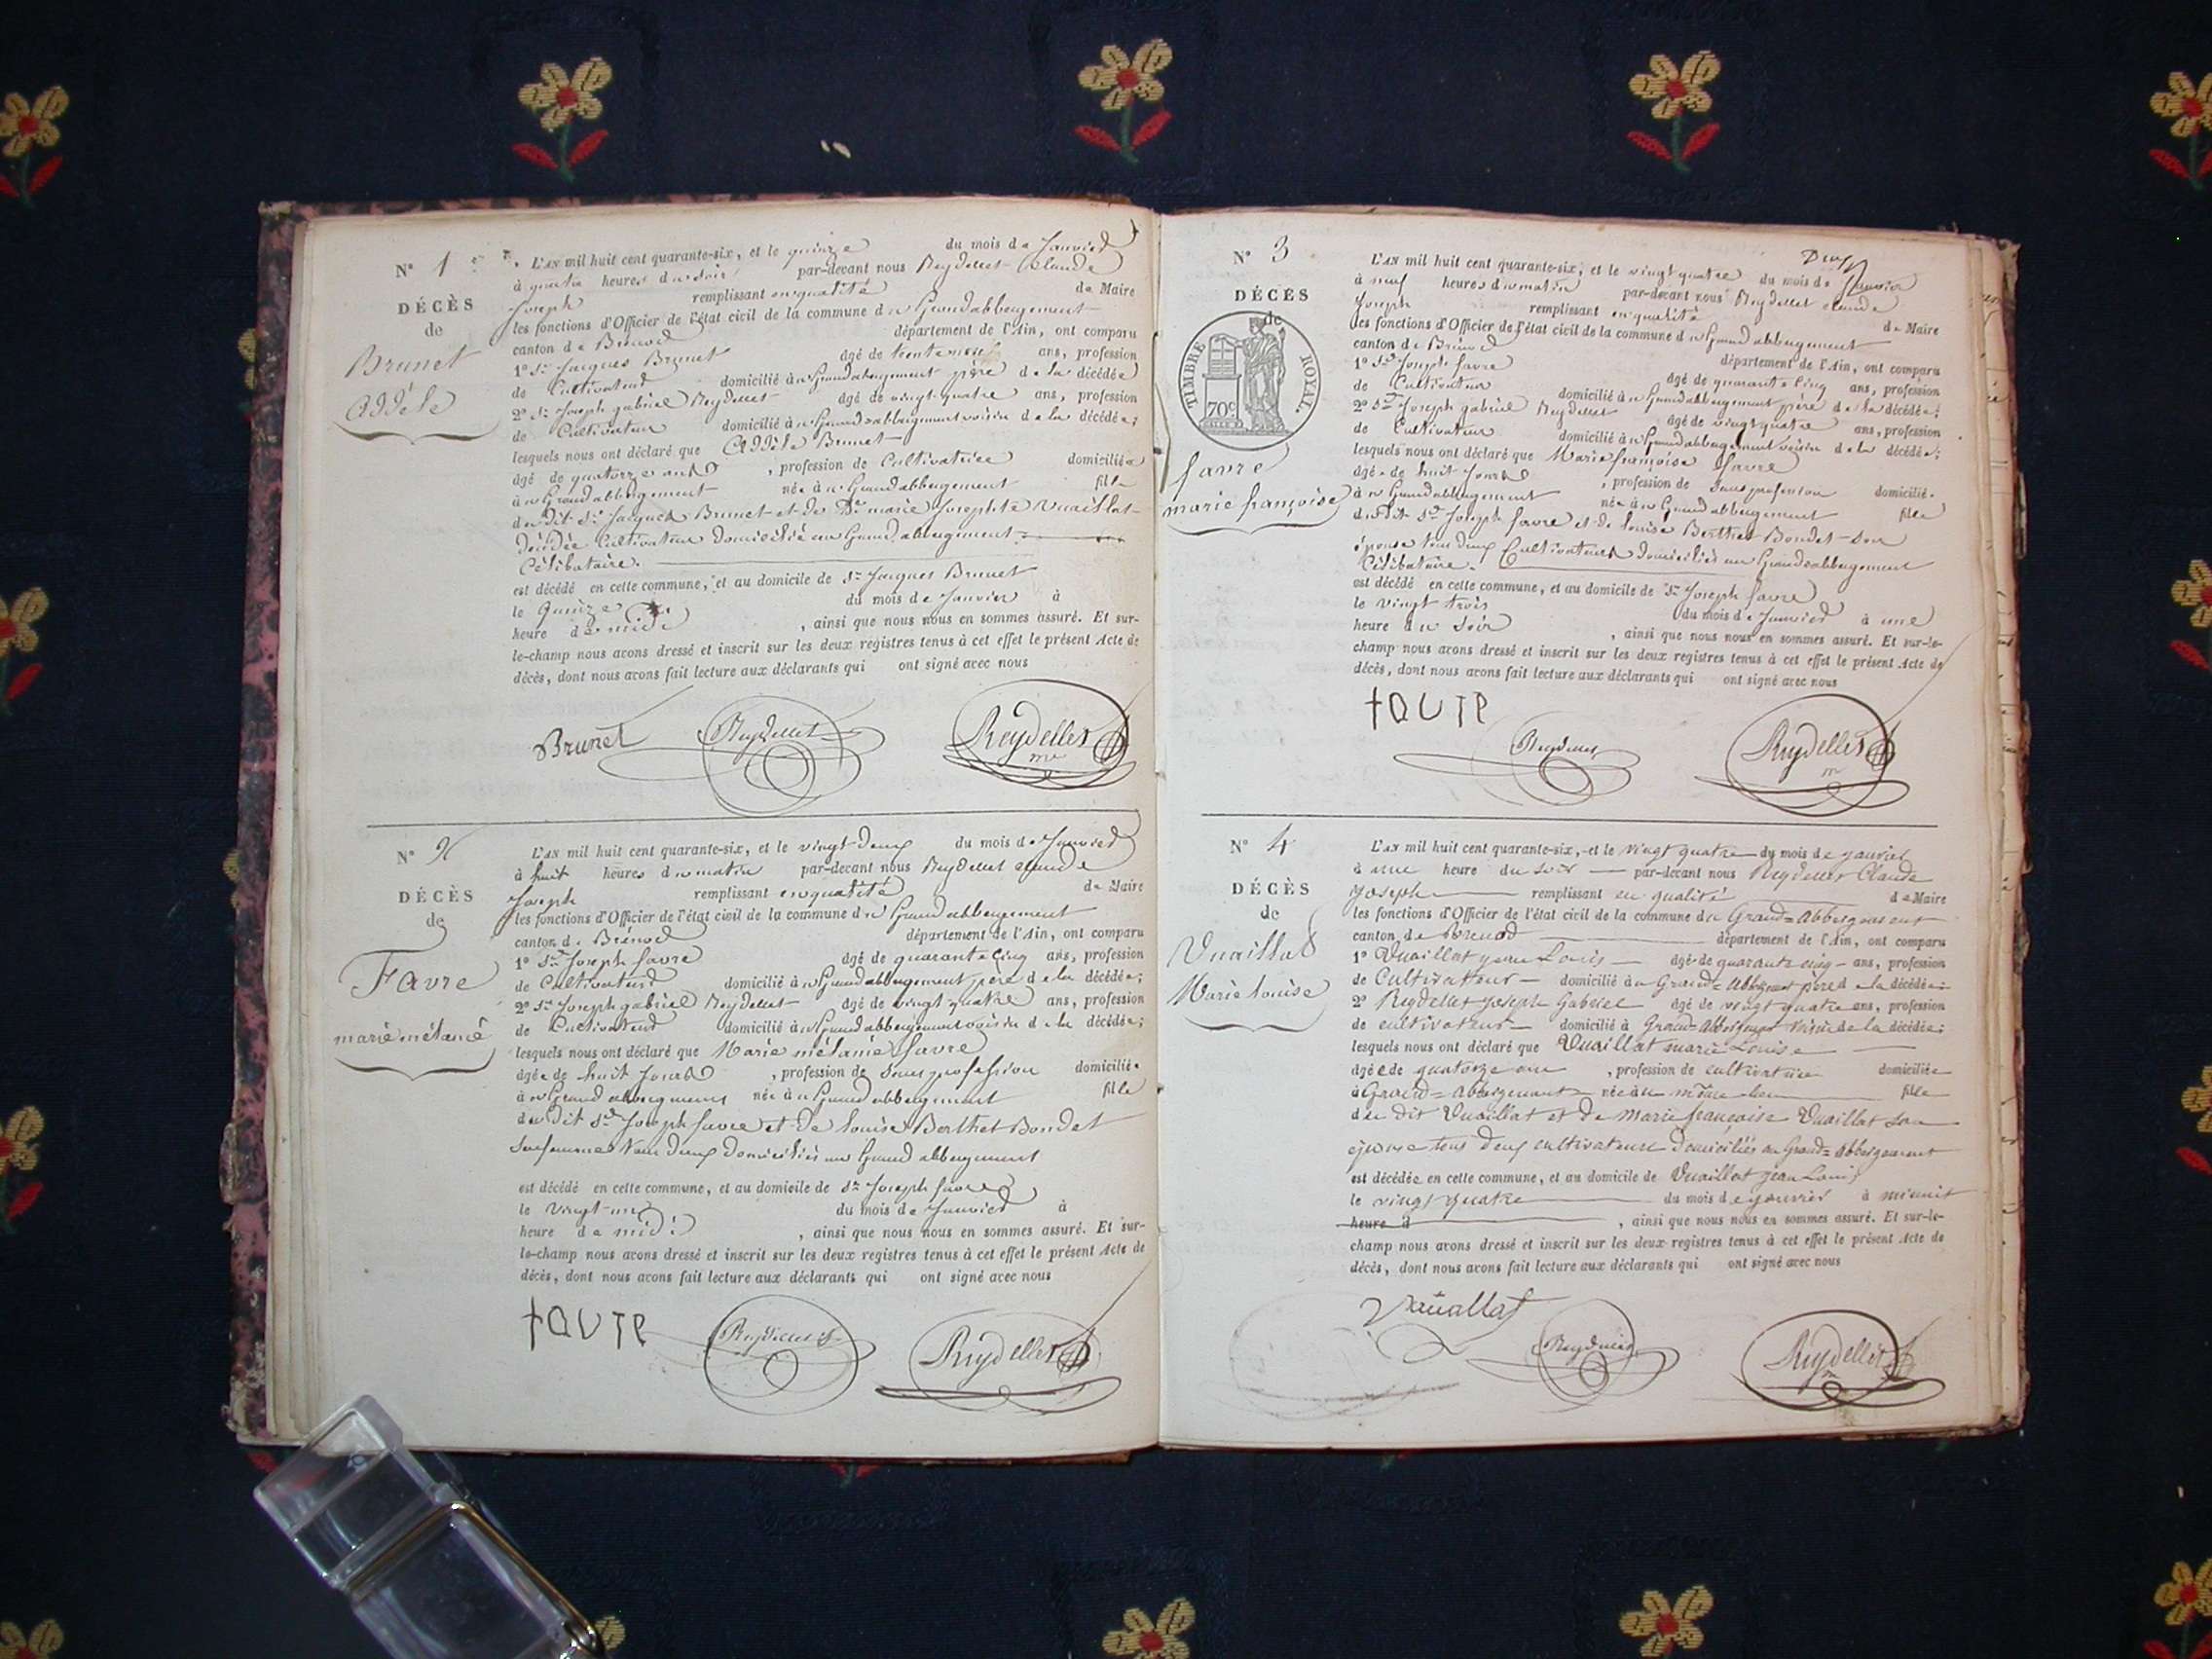 N° 1er
DÉCÈS
de
Brunet
Addèle
L'AN mil huit cent quarante-six, et le quinze du mois de Janvier
à quatre heures du soir par-devant nous Reydellet Claude
Joseph remplissant en qualité de Maire
les fonctions d'Officier de l'état civil de la commune du Grand abbergement
canton de Brénod département de l'Ain, ont comparu
1° Sr Jacques Brunet âgé de trente neuf ans, profession
de Cultivateur domicilié au Grand abbergement père de la décédée
2° Sr Joseph gabriel Reydellet âgé de vingt quatre ans, profession
de Cultivateur domicilié au Grand abbergement voisin de la décédée;
lesquels nous ont déclaré que Addèle Brunet
âgé de quatorze ans , profession de Cultivatrice domiciliée
au Grand abbergement née au Grand abbergement fille
du dit Sr Jacques Brunet et de De marie Josephte Vuaillat
décédée Cultivateur domicilié au Grand abbergement
Célibataire.
est décédé en cette commune, et au domicile de Sr Jacques Brunet
le Quinze du mois de Janvier à
heure de midi , ainsi que nous nous en sommes assuré. Et sur-
le-champ nous avons dressé et inscrit sur les deux registres tenus à cet effet le présent Acte de
décès, dont nous avons fait lecture aux déclarants qui ont signé avec nous
Brunet Reydellet Reydellet
N° 2
DÉCÈS
de
Favre
marie mélanie
L'AN mil huit cent quarante-six, et le vingt deux du mois de Janvier
à huit heures du matin par-devant nous Reydellet claude
Joseph remplissant en qualité de Maire
les fonctions d'Officier de l'état civil de la commune du Grand abbergement
canton de Brénod département de l'Ain, ont comparu
1° Sr Joseph favre âgé de quarante cinq ans, profession
de Cultivateur domicilié au Grand abbergement père de la décédée;
2° Sr Joseph gabriel Reydellet âgé de vingt quatre ans, profession
de Cultivateur domicilié au Grand abbergement voisin de la décédée;
lesquels nous ont déclaré que Marie mélanie favre
âgée de huit Jours , profession de Sans profession domiciliée
au Grand abbergement née au Grand abbergement fille
du Dit Sr Joseph favre et de louise Berthet Bondet
Sa femme tous deux domiciliés au Grand abbergement
est décédé en cette commune, et au domicile de Sr Joseph favre
le vingt un du mois de Janvier à
heure de midi , ainsi que nous nous en sommes assuré. Et sur-
le-champ nous avons dressé et inscrit sur les deux registres tenus à cet effet le présent Acte de
décès, dont nous avons fait lecture aux déclarants qui ont signé avec nous
Reydellet Reydellet
Deux
N° 3
DÉCÈS
de
TIMBRE ROYAL.
70c
favre
marie françoise
L'AN mil huit cent quarante-six, et le vingt quatre du mois de Janvier
à neuf heures du matin par-devant nous Reydellet claude
Joseph remplissant en qualité de Maire
les fonctions d'Officier de l'état civil de la commune du Grand abbergement
canton de Brénod département de l'Ain, ont comparu
1° Sr Joseph favre âgé de quarante cinq ans, profession
de Cultivateur domicilié au Grand abbergement père de la décédée;
2° Sr Joseph gabriel Reydellet âgé de vingt quatre ans, profession
de Cultivateur domicilié au Grand abbergement voisin de la décédée;
lesquels nous ont déclaré que Marie françoise favre
âgée de huit Jours , profession de Sans profession domiciliée
au Grand abbergement née au Grand abbergement fille
du Dit Sr Joseph favre et de louise Berthet Bondet son
épouse tous deux Cultivateurs domiciliés au Grand abbergement
Célibataire.
est décédé en cette commune, et au domicile de Sr Joseph favre
le vingt trois du mois de Janvier à une
heure du soir , ainsi que nous nous en sommes assuré. Et sur-le-
champ nous avons dressé et inscrit sur les deux registres tenus à cet effet le présent Acte de
décès, dont nous avons fait lecture aux déclarants qui ont signé avec nous
Reydellet Reydellet
N° 4
DÉCÈS
de
Vuaillat
Marie louise
L'AN mil huit cent quarante-six, et le vingt quatre du mois de janvier
à une heure du soir par-devant nous Reydellet Claude
joseph remplissant en qualité de Maire
les fonctions d'Officier de l'état civil de la commune du Grand=Abbergement
canton de Brenod département de l'Ain, ont comparu
1° Vuaillat jean Louis âgé de quarante cinq ans, profession
de Cultivateur domicilié au Grand=Abbergement père de la décédée;
2° Reydellet joseph Gabriel âgé de vingt quatre ans, profession
de cultivateur domicilié à Grand=Abbergement voisin de la décédée;
lesquels nous ont déclaré que Vuaillat marie Louise
âgée de quatorze ans , profession de cultivatrice domiciliée
à Grand=Abbergement née au même lieu fille
du dit Vuaillat et de Marie françoise Vuaillat son
épouse tous deux cultivateurs domiciliés au Grand=Abbergement
est décédée en cette commune, et au domicile de Vuaillat jean Louis
le vingt quatre du mois de janvier à minuit
heure d , ainsi que nous nous en sommes assuré. Et sur-le-
champ nous avons dressé et inscrit sur les deux registres tenus à cet effet le présent Acte de
décès, dont nous avons fait lecture aux déclarants qui ont signé avec nous
Reydellet Reydellet